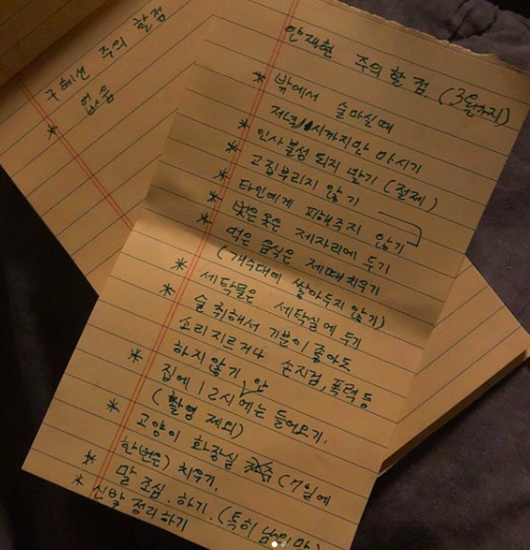 구혜선 주의 할점
* 없음
안재현 주의 할 점. (3월까지)
* 밖에서 술마실때
저녁 11시까지만 마시기
* 인사불성 되지 말기 (절제)
* 고집부리지 않기
* 타인에게 피해주지 않기
* 벗은 옷은 제자리에 두기
* 먹은 음식은 제때 치우기
(개수대에 쌓아두지 않기)
* 세탁물은 세탁실에 두기
* 술 취해서 기분이 좋아도
소리지르거나 손지검, 폭력 등
하지 않기 안
* 집에 12시에는 들어오기.
(촬영 제외)
* 고양이 화장실 (7일에
한번은) 치우기.
* 말 조심. 하기. (특히
* 신발 정리하기